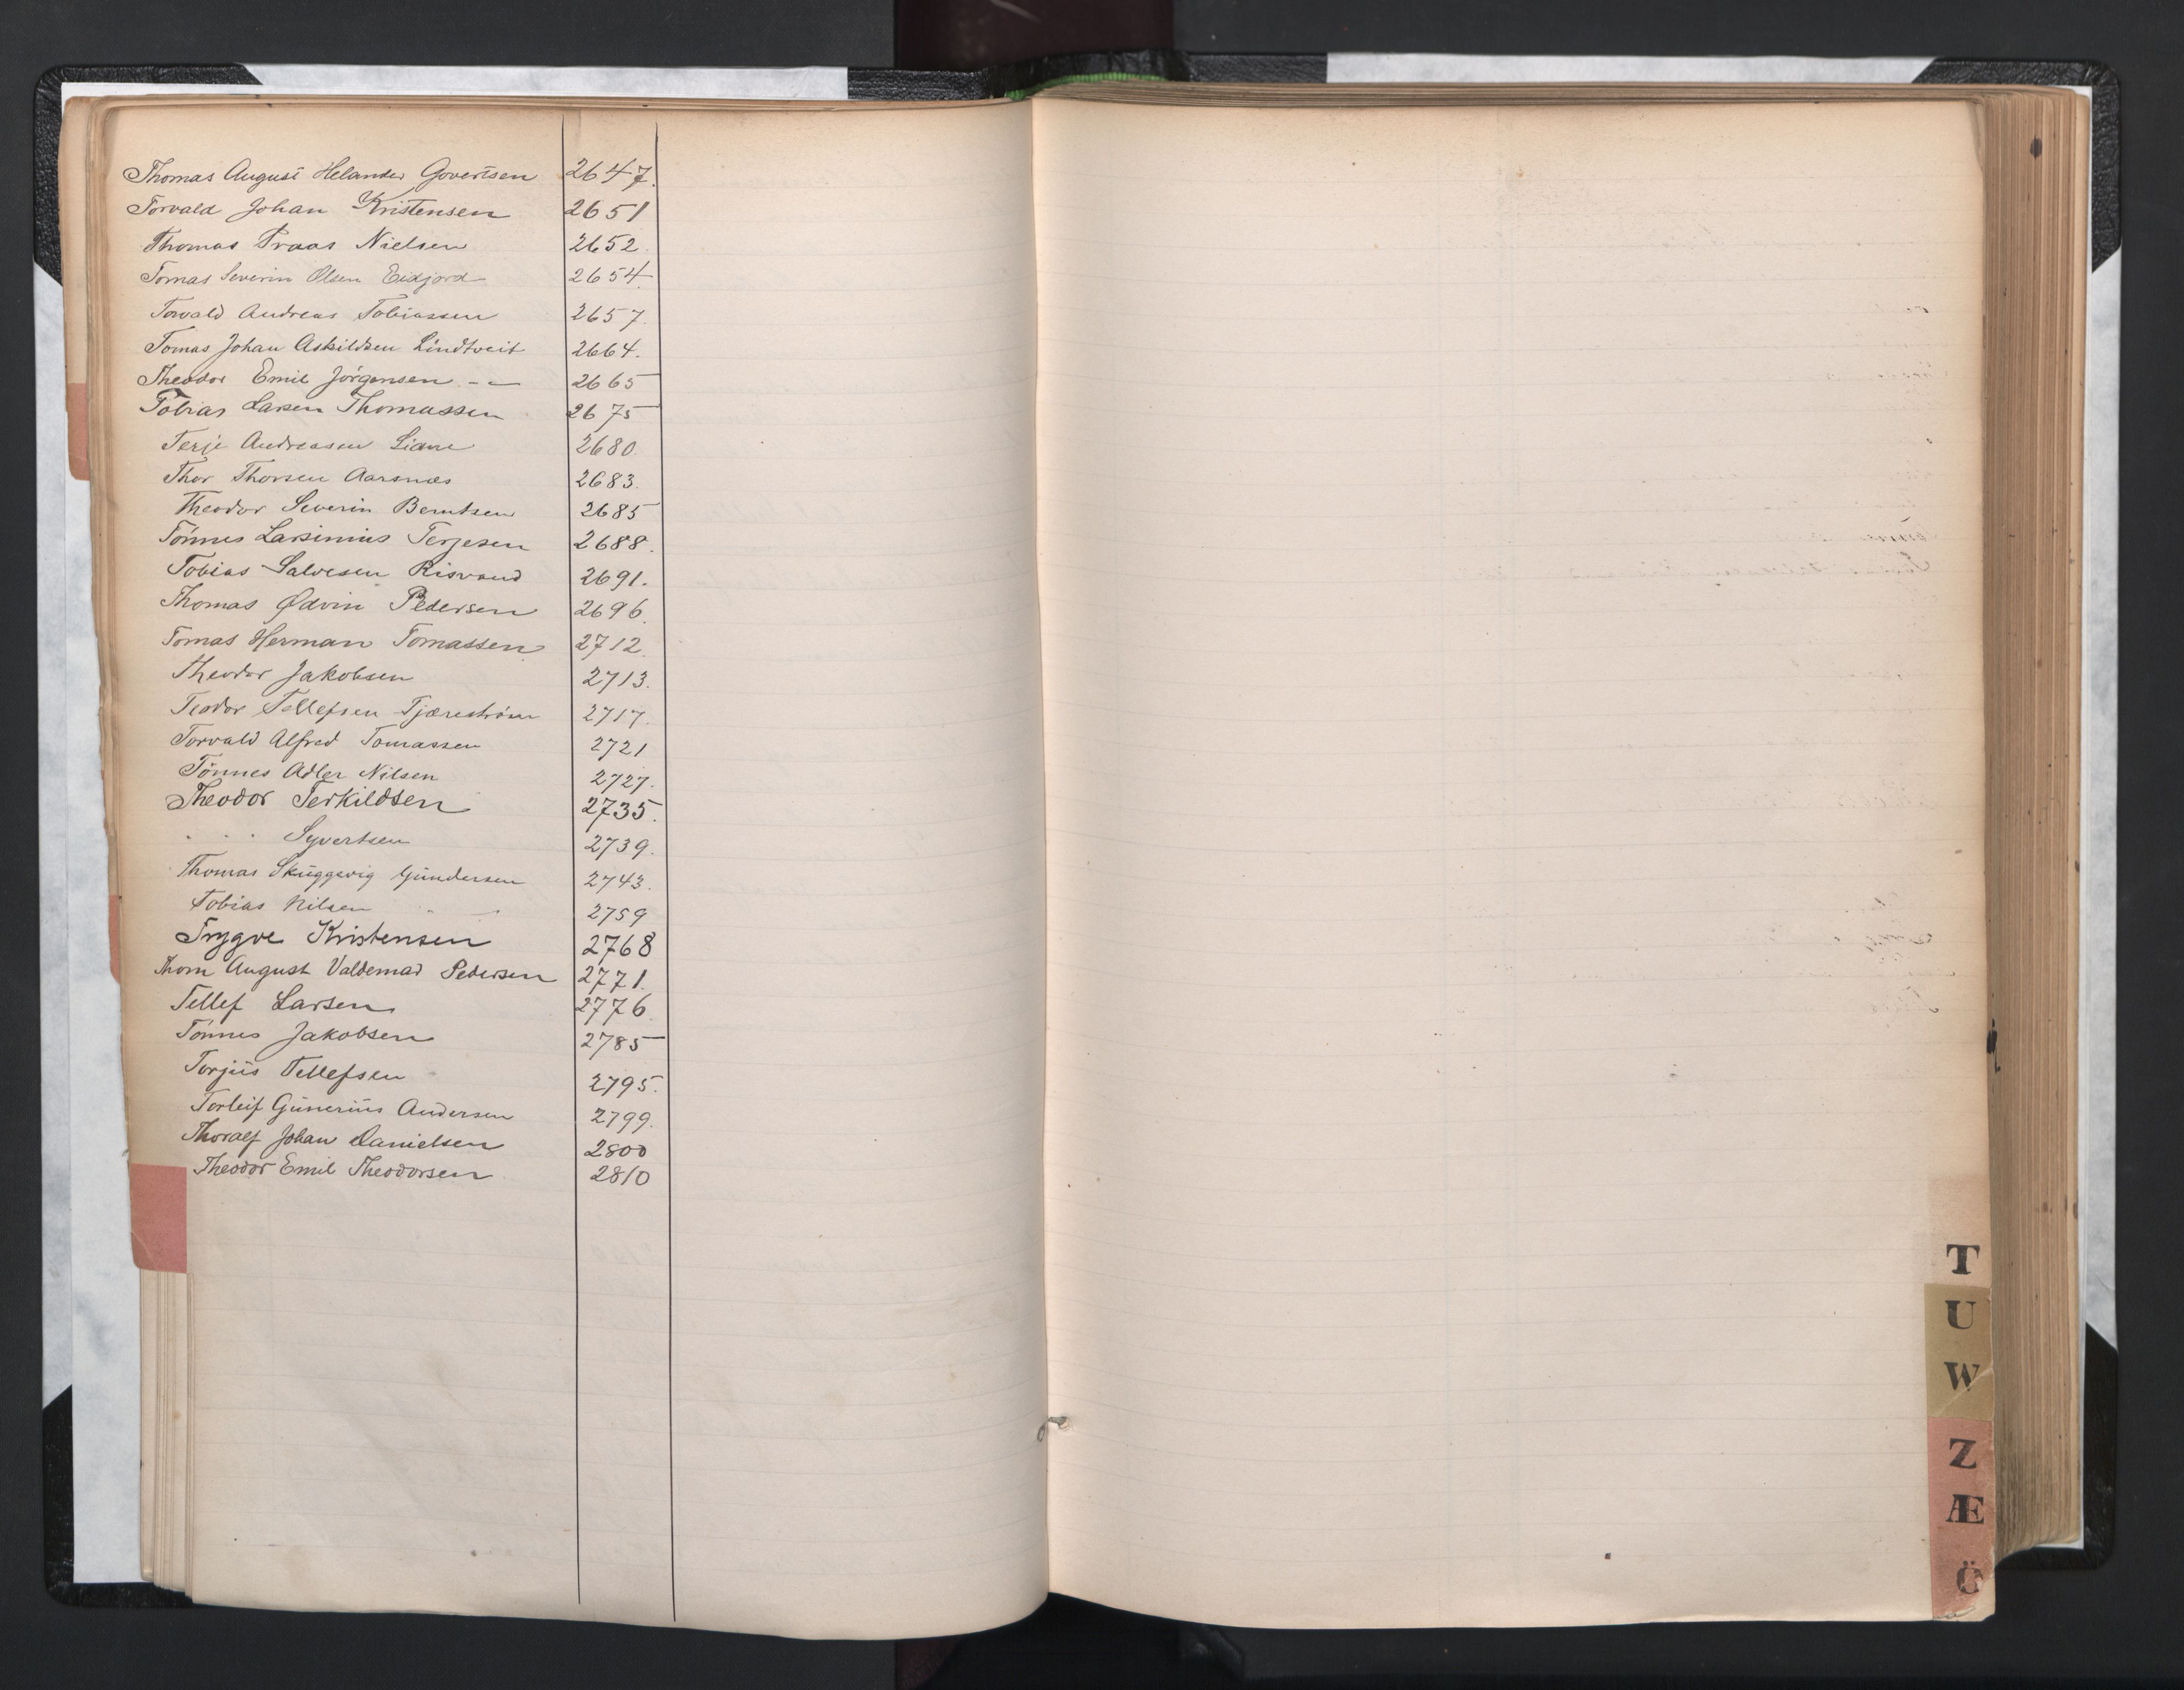 Thomas August Helander Govertsen 2647.
Torvald Johan Kristensen 2651
Thomas Traas Nielsen 2652.
Tomas Severin Olsen Eidjord 2654.
Torvald Andreas Tobiassen 2657.
Tomas Johan Askildsen Lindtveit 2664.
Theodor Emil Jörgensen - - 2665
Tobias Larsen Thomassen 2675
Terje Andreasen Liane 2680.
Thor Thorsen Aarsnæs 2683.
Theodor Severin Berntsen 2685
Tönnes Larsinius Terjesen 2688.
Tobias Salvesen Risvand 2691.
Thomas Ødvin Pedersen 2696.
Tomas Herman Tomassen 2712.
Theodor Jakobsen 2713.
Teodor Tellefsen Tjæreström 2717.
Torvald Alfred Tomassen 2721
Tönnes Adler Nilsen 2727.
Theodor Terkildsen 2735.
. . . Syvertsen 2739.
Thomas Skuggevig Gundersen 2743.
Tobias Nilsen 2759
Trygve Kristensen 2768
Thom August Valdemar Pedersen 2771.
Tellef Larsen 2776.
Tönnes Jakobsen 2785
Torjus Tellefsen 2795.
Torleif Gunerius Andersen 2799.
Thoralf Johan Danielsen 2800
Theodor Emil Theodorsen 2810
T
U
W
Z
Æ
Ö